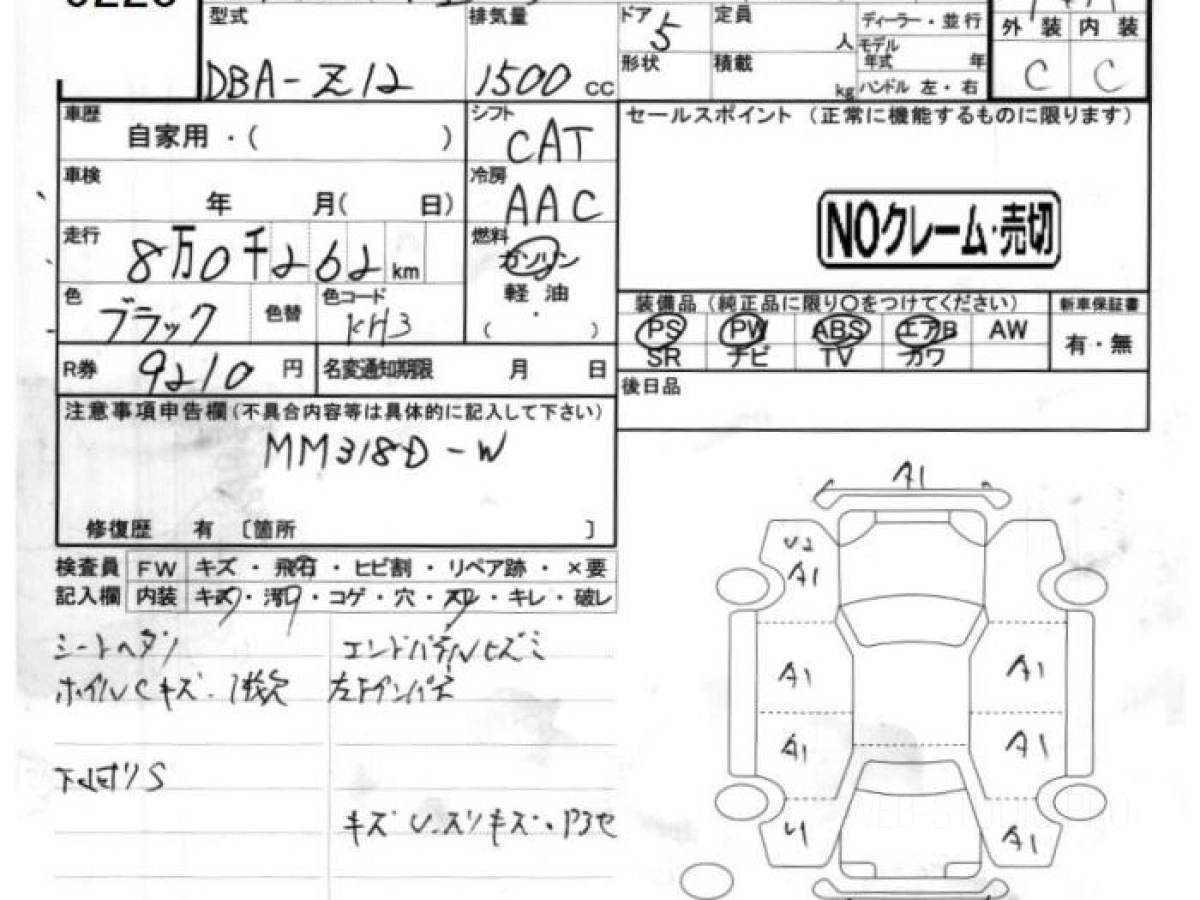 型式 排気量 ドア 定員 ディーラー・並行
5 人 モデル年式 年 外装 内装
DBA-Z12 1500 cc 形状 積載 kg ハンドル 左・右 C C
車歴 自家用・( ) シフト CAT セールスポイント (正常に機能するものに限ります)
車検 年 月( 日) 冷房 AAC
NOクレーム・売切
走行 8万0千262 km 燃料 ガソリン
軽油
( )
色 ブラック 色替 色コード KH3
装備品(純正品に限り○をつけてください) 新車保証書
PS PW ABS エアB AW 有・無
SR ナビ TV カワ
R券 9210 円 名変通知期限 月 日
後日品
注意事項申告欄(不具合内容等は具体的に記入して下さい)
MM318D-W
修復歴 有 〔箇所 〕
検査員 FW キズ・飛石・ヒビ割・リペア跡・×要
記入欄 内装 キズ・汚・コゲ・穴・スレ・キレ・破レ
シートヘタリ エンドパネルヒズミ
ホイルCキズ・1枚欠 左下インパネ
下廻リS
キズ U.スリキズ
A1
U2
A1
A1 A1
A1 A1
U1 A1